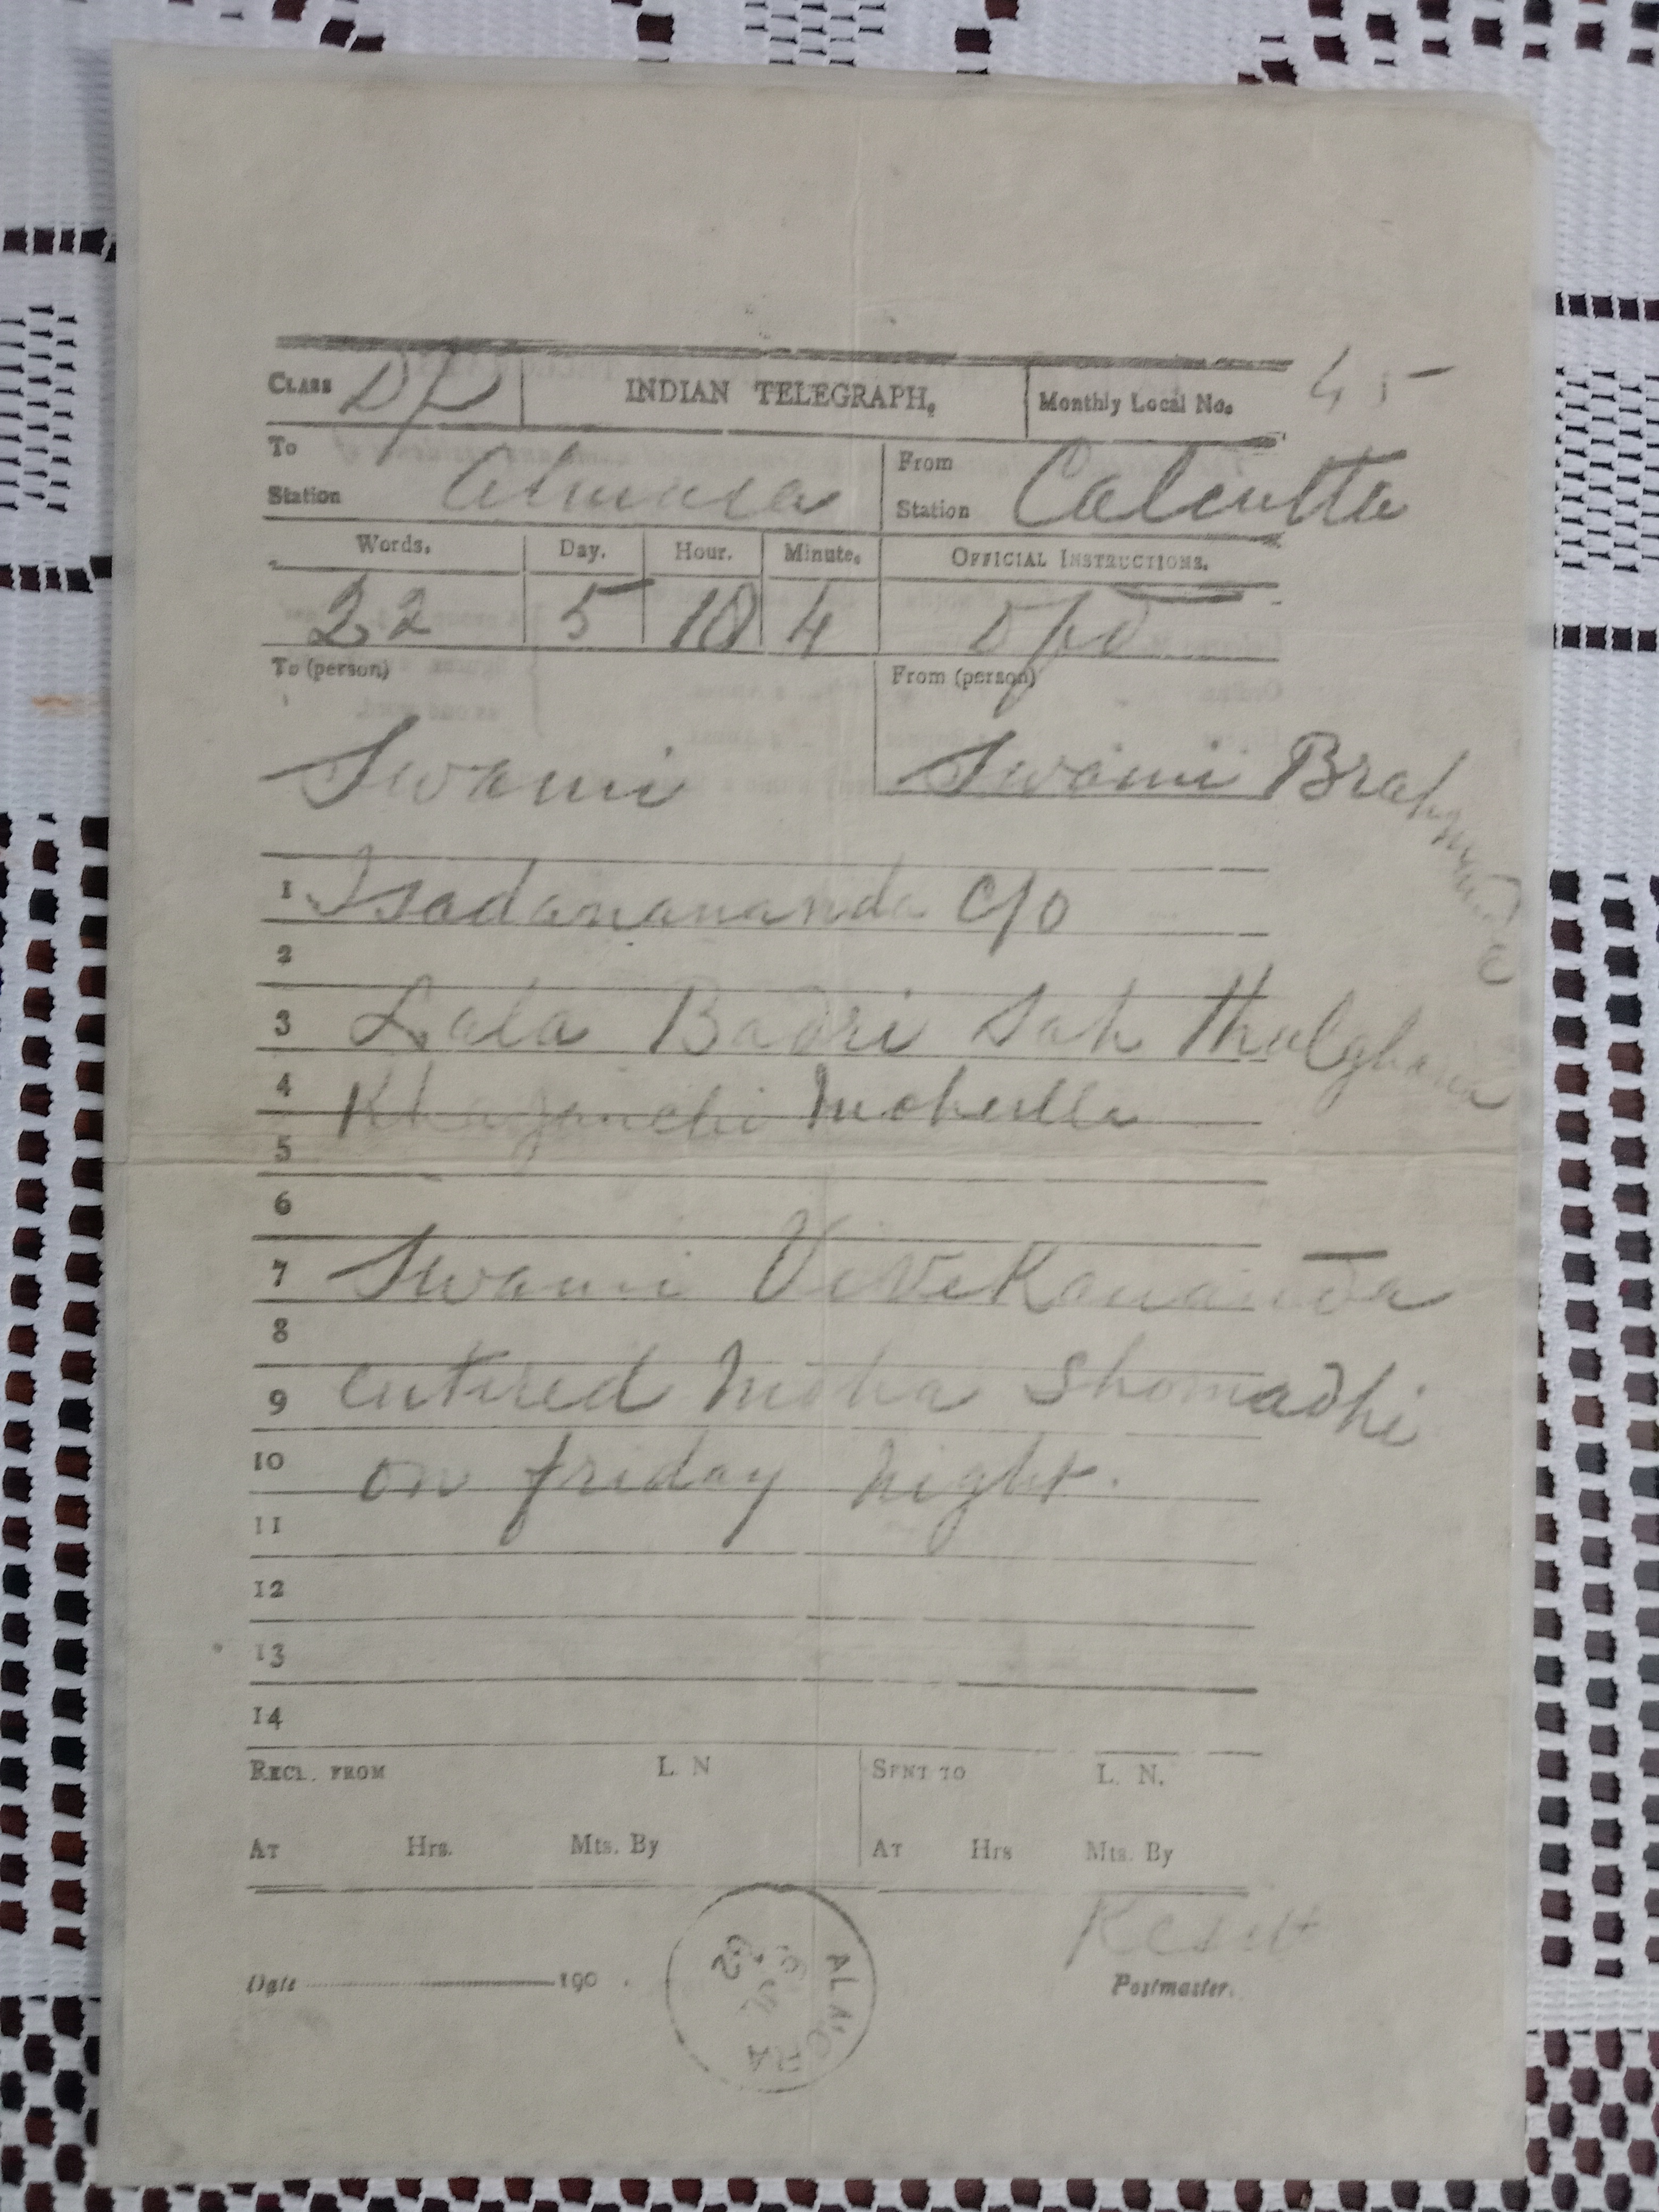 CLASS INDIAN TELEGRAPH. Monthly Local No. 45
To Station Almora From Station Calcutta
Words. Day. Hour. Minute. OFFICIAL INSTRUCTIONS.
22 5 18 4
To (person) From (person)
Swami Swami Brahmananda
1 Isadananananda C/o
2
3 Lala Badri Sah Thulgharia
4 Khazanchi Mohulla
5
6
7 Swami Vivekananda
8
9 entired Moha Shomadhi
10 on friday night.
11
12
13
14
RECL. FROM L. N SENT TO L. N.
AT Hrs. Mts. By AT Hrs Mts. By
Date 190 .
ALMORA
02
Postmaster.